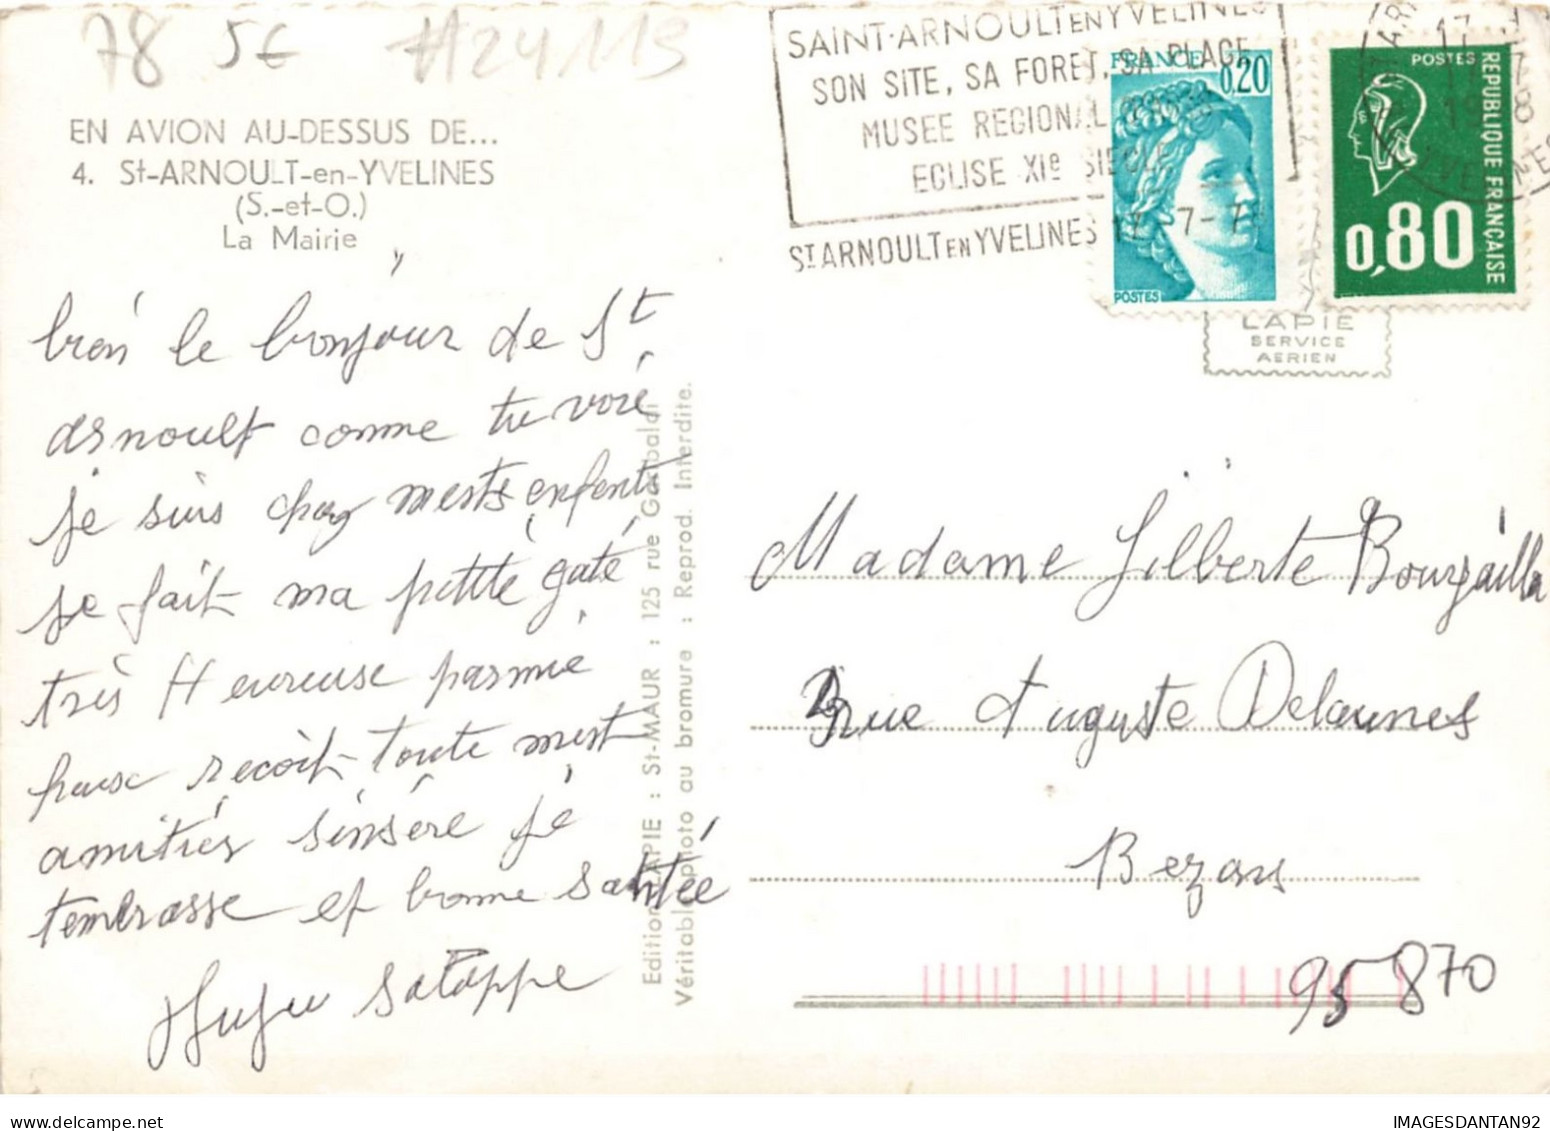 78 5€ #24113
EN AVION AU-DESSUS DE...
4. St-ARNOULT-en-YVELINES
(S.-et-O.)
La Mairie
SAINT-ARNOULT EN YVELINES
SON SITE, SA FORET, SA PLAGE
MUSEE REGIONAL
EGLISE XIe SIECLE
ST ARNOULT EN YVELINES 17 -7-78
FRANCE 0,20
POSTES
POSTES
REPUBLIQUE FRANÇAISE
0,80
LAPIE
SERVICE
AERIEN
bien le bonjour de St
arnoult comme tu voie
je suis chez enfents
je fait ma petite gaté
très Heureuse parmie
recoit toute
amitiés sinsère je
tembrasse et bonne santée
Editions LAPIE : St-MAUR : 125 rue Garibaldi
Véritable photo au bromure : Reprod. Interdite.
Madame Gilberte
rue Auguste Delaunes
Bezons
95870
IMAGESDANTAN92